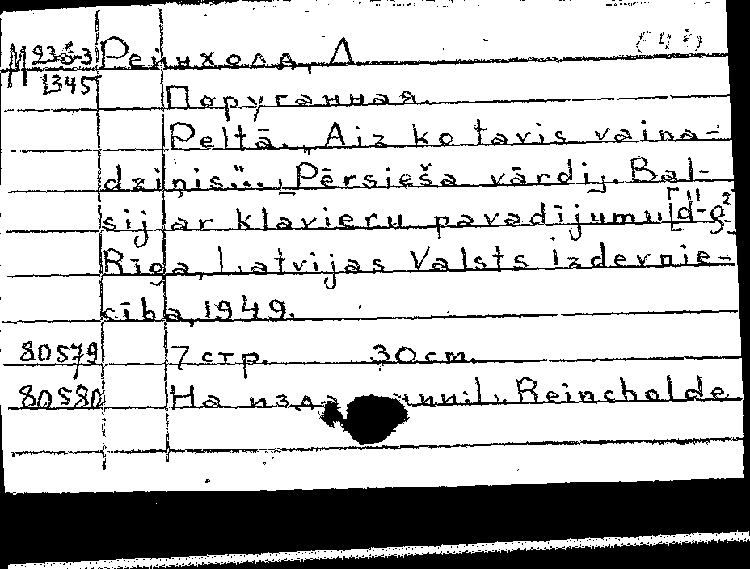 М 236-3 Рейнхолд, Л.
1345
Поруганная.
Peltā. „Aiz ko tavis vaina-
dziņis"... Pērsieša vārdi. Bal-
sij ar klavieru pavadījumu [d¹-g²]
Rīga, Latvijas Valsts izdevnie-
cība, 1949.
80579 7 стр. 30 см.
80580 На Reincholde